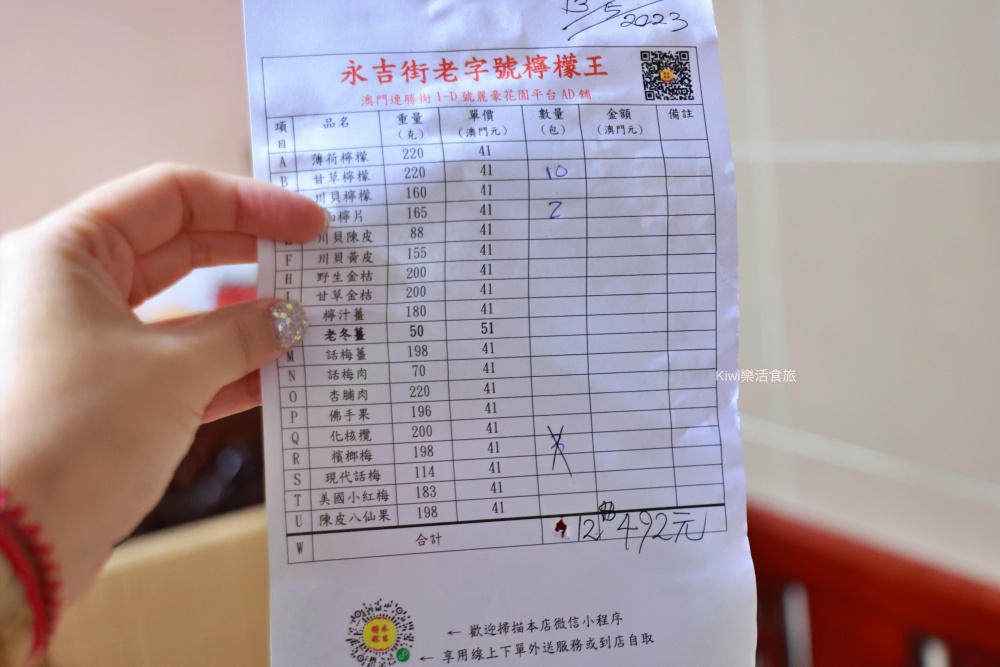 13/5/2023
永吉街老字號檸檬王
澳門連勝街1-D號麗豪花園平台AD舖
項目 品名 重量(克) 單價(澳門元) 數量(包) 金額(澳門元) 備註
A 薄荷檸檬 220 41
B 甘草檸檬 220 41 10
川貝檸檬 160 41
檸片 165 41 2
川貝陳皮 88 41
F 川貝黃皮 155 41
H 野生金桔 200 41
甘草金桔 200 41
檸汁薑 180 41
老冬薑 50 51
M 話梅薑 198 41
N 話梅肉 70 41
O 杏脯肉 220 41
P 佛手果 196 41
Q 化核欖 200 41
R 檳榔梅 198 41
S 現代話梅 114 41
T 美國小紅梅 183 41
U 陳皮八仙果 198 41
W 合計 12 492元
Kiwi樂活食旅
← 歡迎掃描本店微信小程序
← 享用線上下單外送服務或到店自取